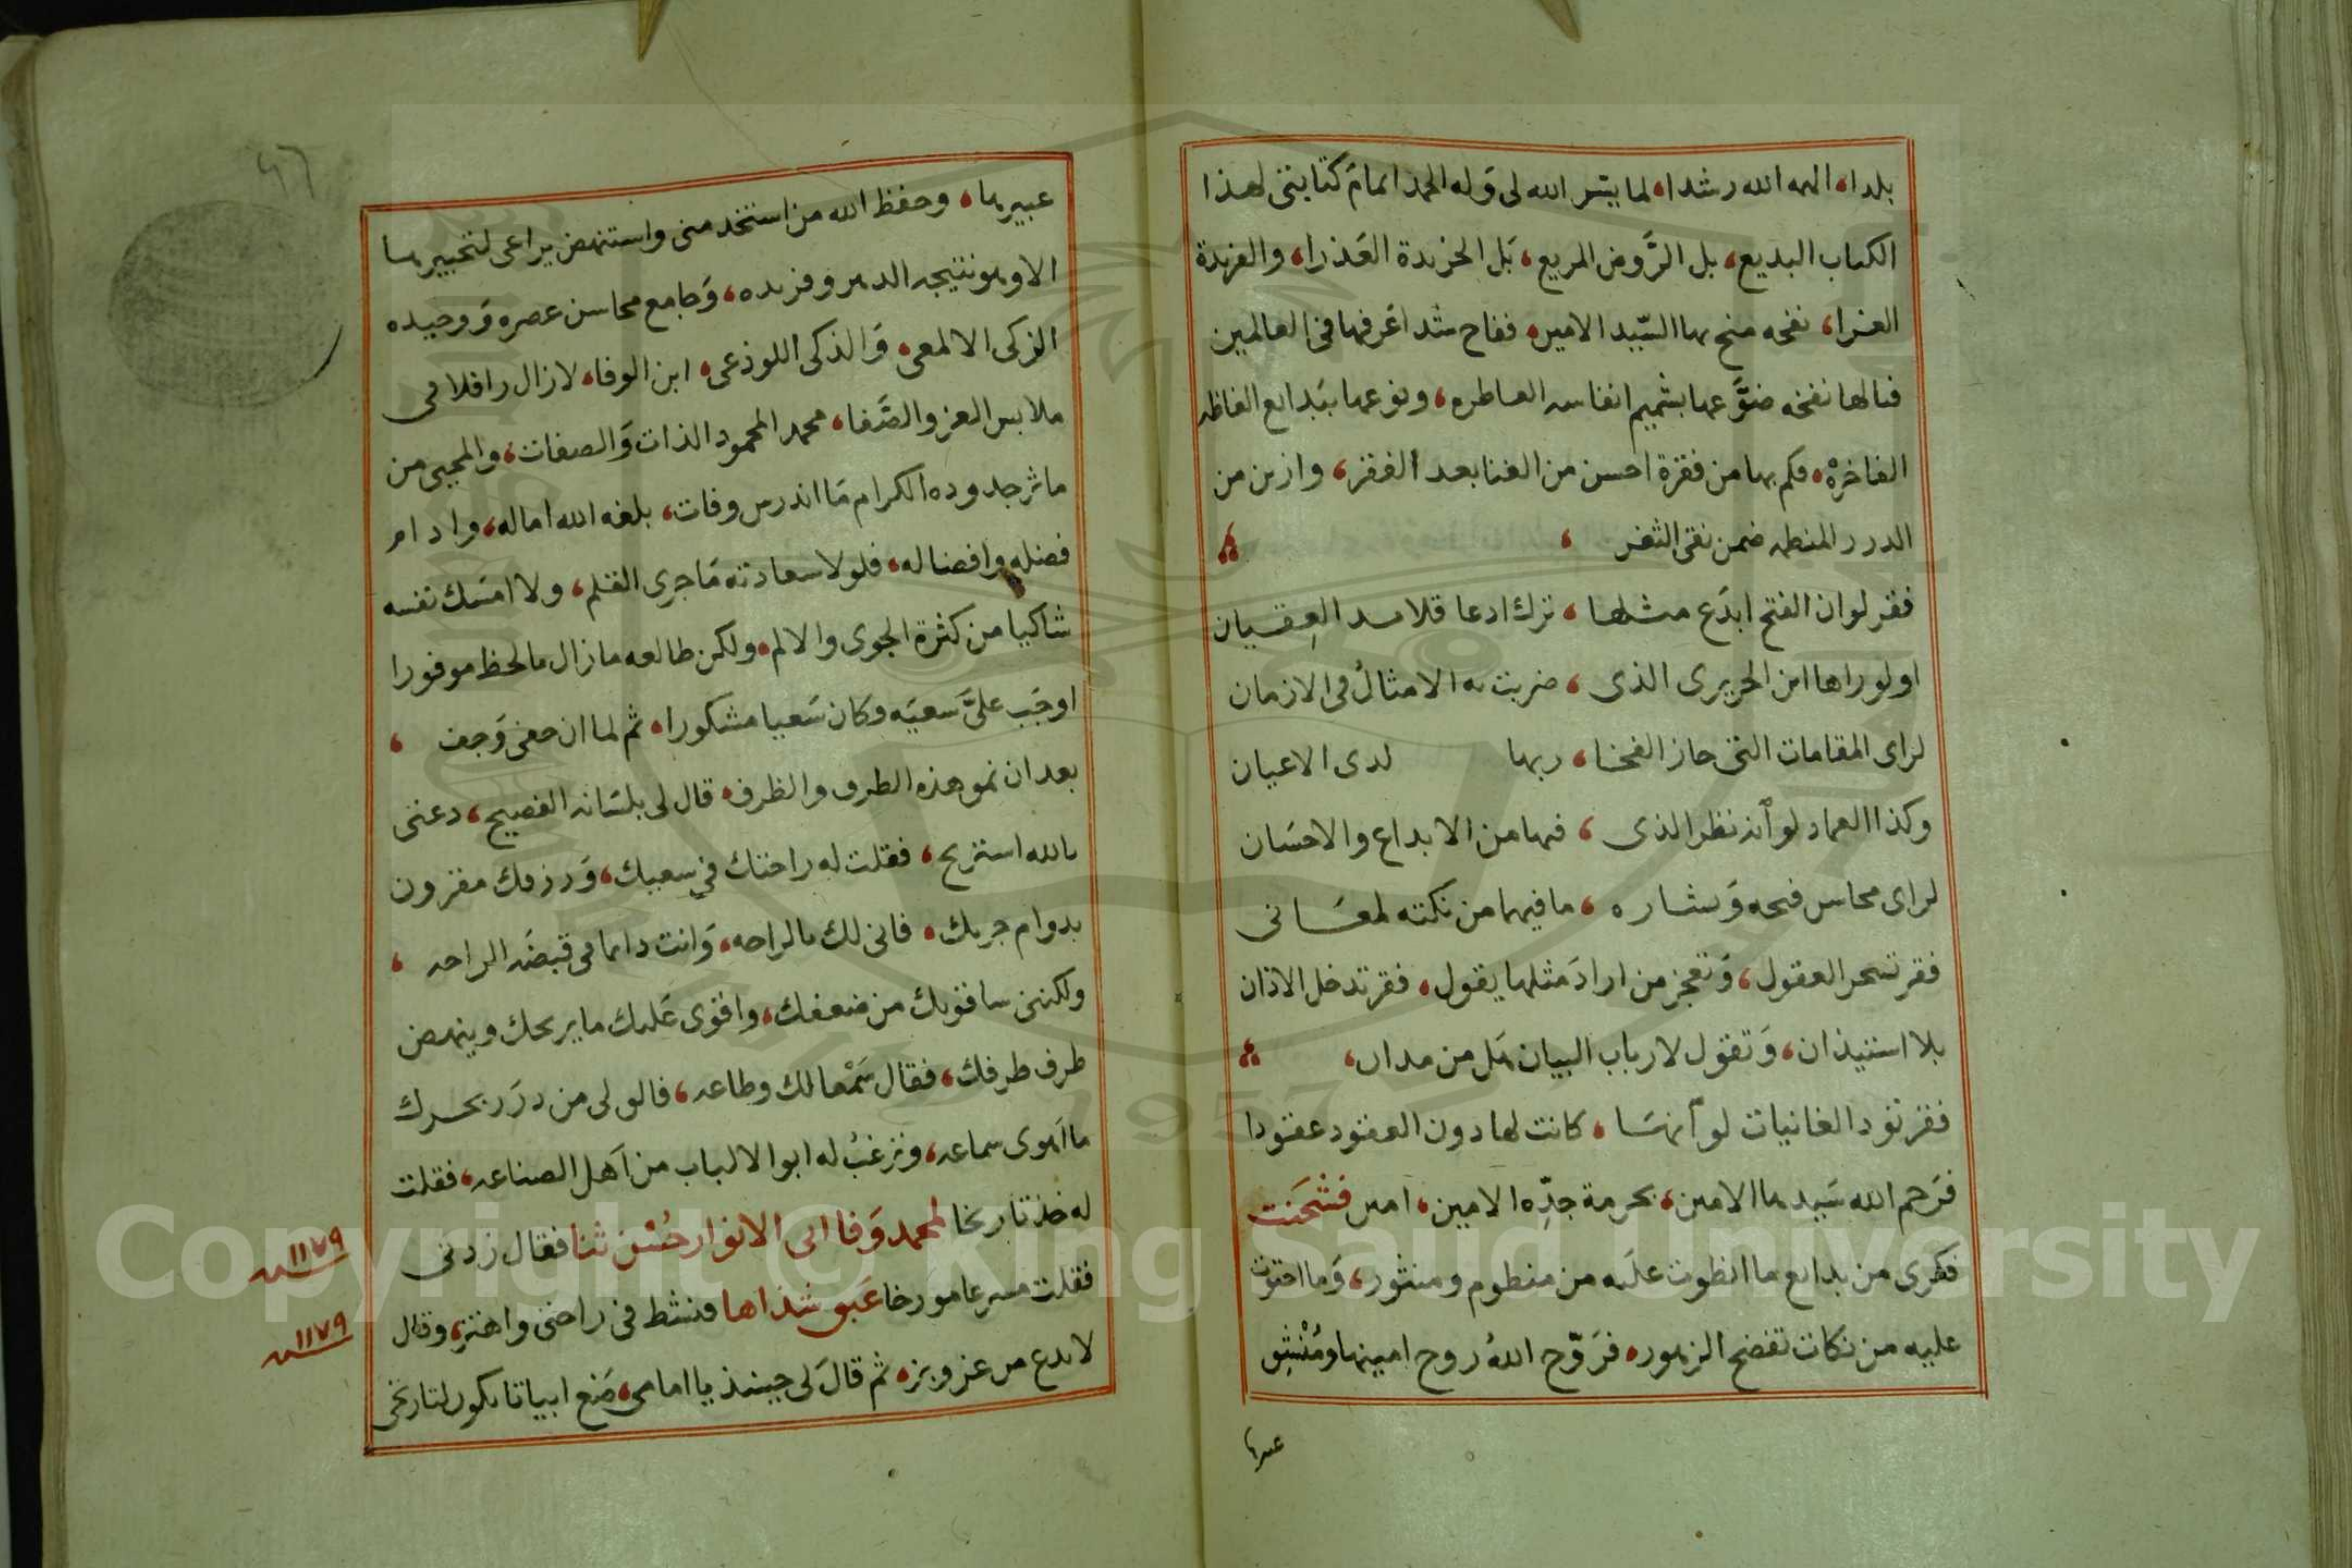 بلدا، الهمه الله رشدا، لما يسر الله لى وله الحمد اتمام كتابتى لهذا
الكتاب البديع، بل الرَّوض المريع، بَل الخريدة العَذرا، والفريدة
الغرا، نفحه منح بها السّيد الامين، ففاح شذا عَرفها فى العالمين
فيالها نفحه ضوَّعها بشميم انفاسه العاطره، ونوعها ببَدايع الفاظه
الفاخرة، فكم بها من فقرة احسن من الغنا بعد الفقر، وازين من
الدرر المنظمه ضمن نقى الثغر ،
فقر لوان الفتح ابدَع مثلها ، ترك ادعا قلايد العِقيان
اولوراها ابن الحريرى الذى ، ضربت به الامثالُ فى الازمان
لراى المقامات التى حاز الفخا ، ربها لدى الاعيان
وكذا العماد لو أنه نظر الذى ، فيها من الابداع والاحسَان
لراى محاسن فتحه وَبشاره ، ما فيهما من نكته لمعَانى
فقر تسحر العقول، وَتعجز من ارادَ مثلها يقول، فقر تدخل الاذان
بلا استيذان، وَتقول لارباب البيان هَل من مدان،
فقر تود الغانيات لو أنهسَا ، كانت لها دون العقود عقودا
فرَحم الله سَيدها الامين، بحرمة جدِّه الامين، امين فشحَنت
فكرى من بدايع ما انطوت علَيه من منظوم ومنثور، وَما احتوت
عليه من نكات تفضح الزهور، فرَوّح اللهُ روح امينها ومُنْشِق
عبيرها
٩٦
عبيرها، وحفظ الله من استخدمنى واستنهض يراعى لتحبيرها
الاوهو نتيجه الدهر وفريده، وَجامع محاسن عصره وَوحيده
الزكى الالمعى، وَالذكى اللوذعى، ابن الوفا، لازال رافلا فى
ملابس العز والصَّفا، محمد المحمود الذات وَالصفات، والمحيى من
ماثر جدوده الكرام مَا اندرس وفات، بلغه الله اماله، وادام
فضله وافضاله، فلولا سعادته مَا جرى القلم، ولا امسَك نفسه
شاكيا من كثرة الجوى والالم، ولكن طالعه مازال مالحظ موفورا
اوجَب علىَّ سعيَه وكان سَعيا مشكورا، ثم لما ان حفى وَجف ،
بعد ان نمو هذه الطرف والظرف، قال لى بلسَانه الفصيح، دعنى
بالله استريح، فقلت له راحتك في سعيك، وَرزقك مقرون
بدوام جريك، فانى لك بالراحه، وَانت دايما فى قبضَه الراحه ،
ولكننى ساقويك من ضعفك، واقوى عَليك ما يريحك وينهض
طرف طرفك، فقال سَمْعا لك وطاعه، فالق لى من درَر بحرك
ما اهوى سماعه، وترغبُ له ابوا الالباب من اهَل الصناعه، فقلت
له خذ تاريخا لمحمد وَفا ابى الانوار حُسْن ثنا فقال زدنى
١١٧٩ سنه
فقلت مسرعا مورخا عَبق شذاها فنشط فى راحتى واهتز، وقال
١١٧٩ سنه
لابدع من عز وبز، ثم قالَ لى حينئذ يا امامى، ضَع ابياتا تكون لتاريخى
Copyright © King Saud University
1957